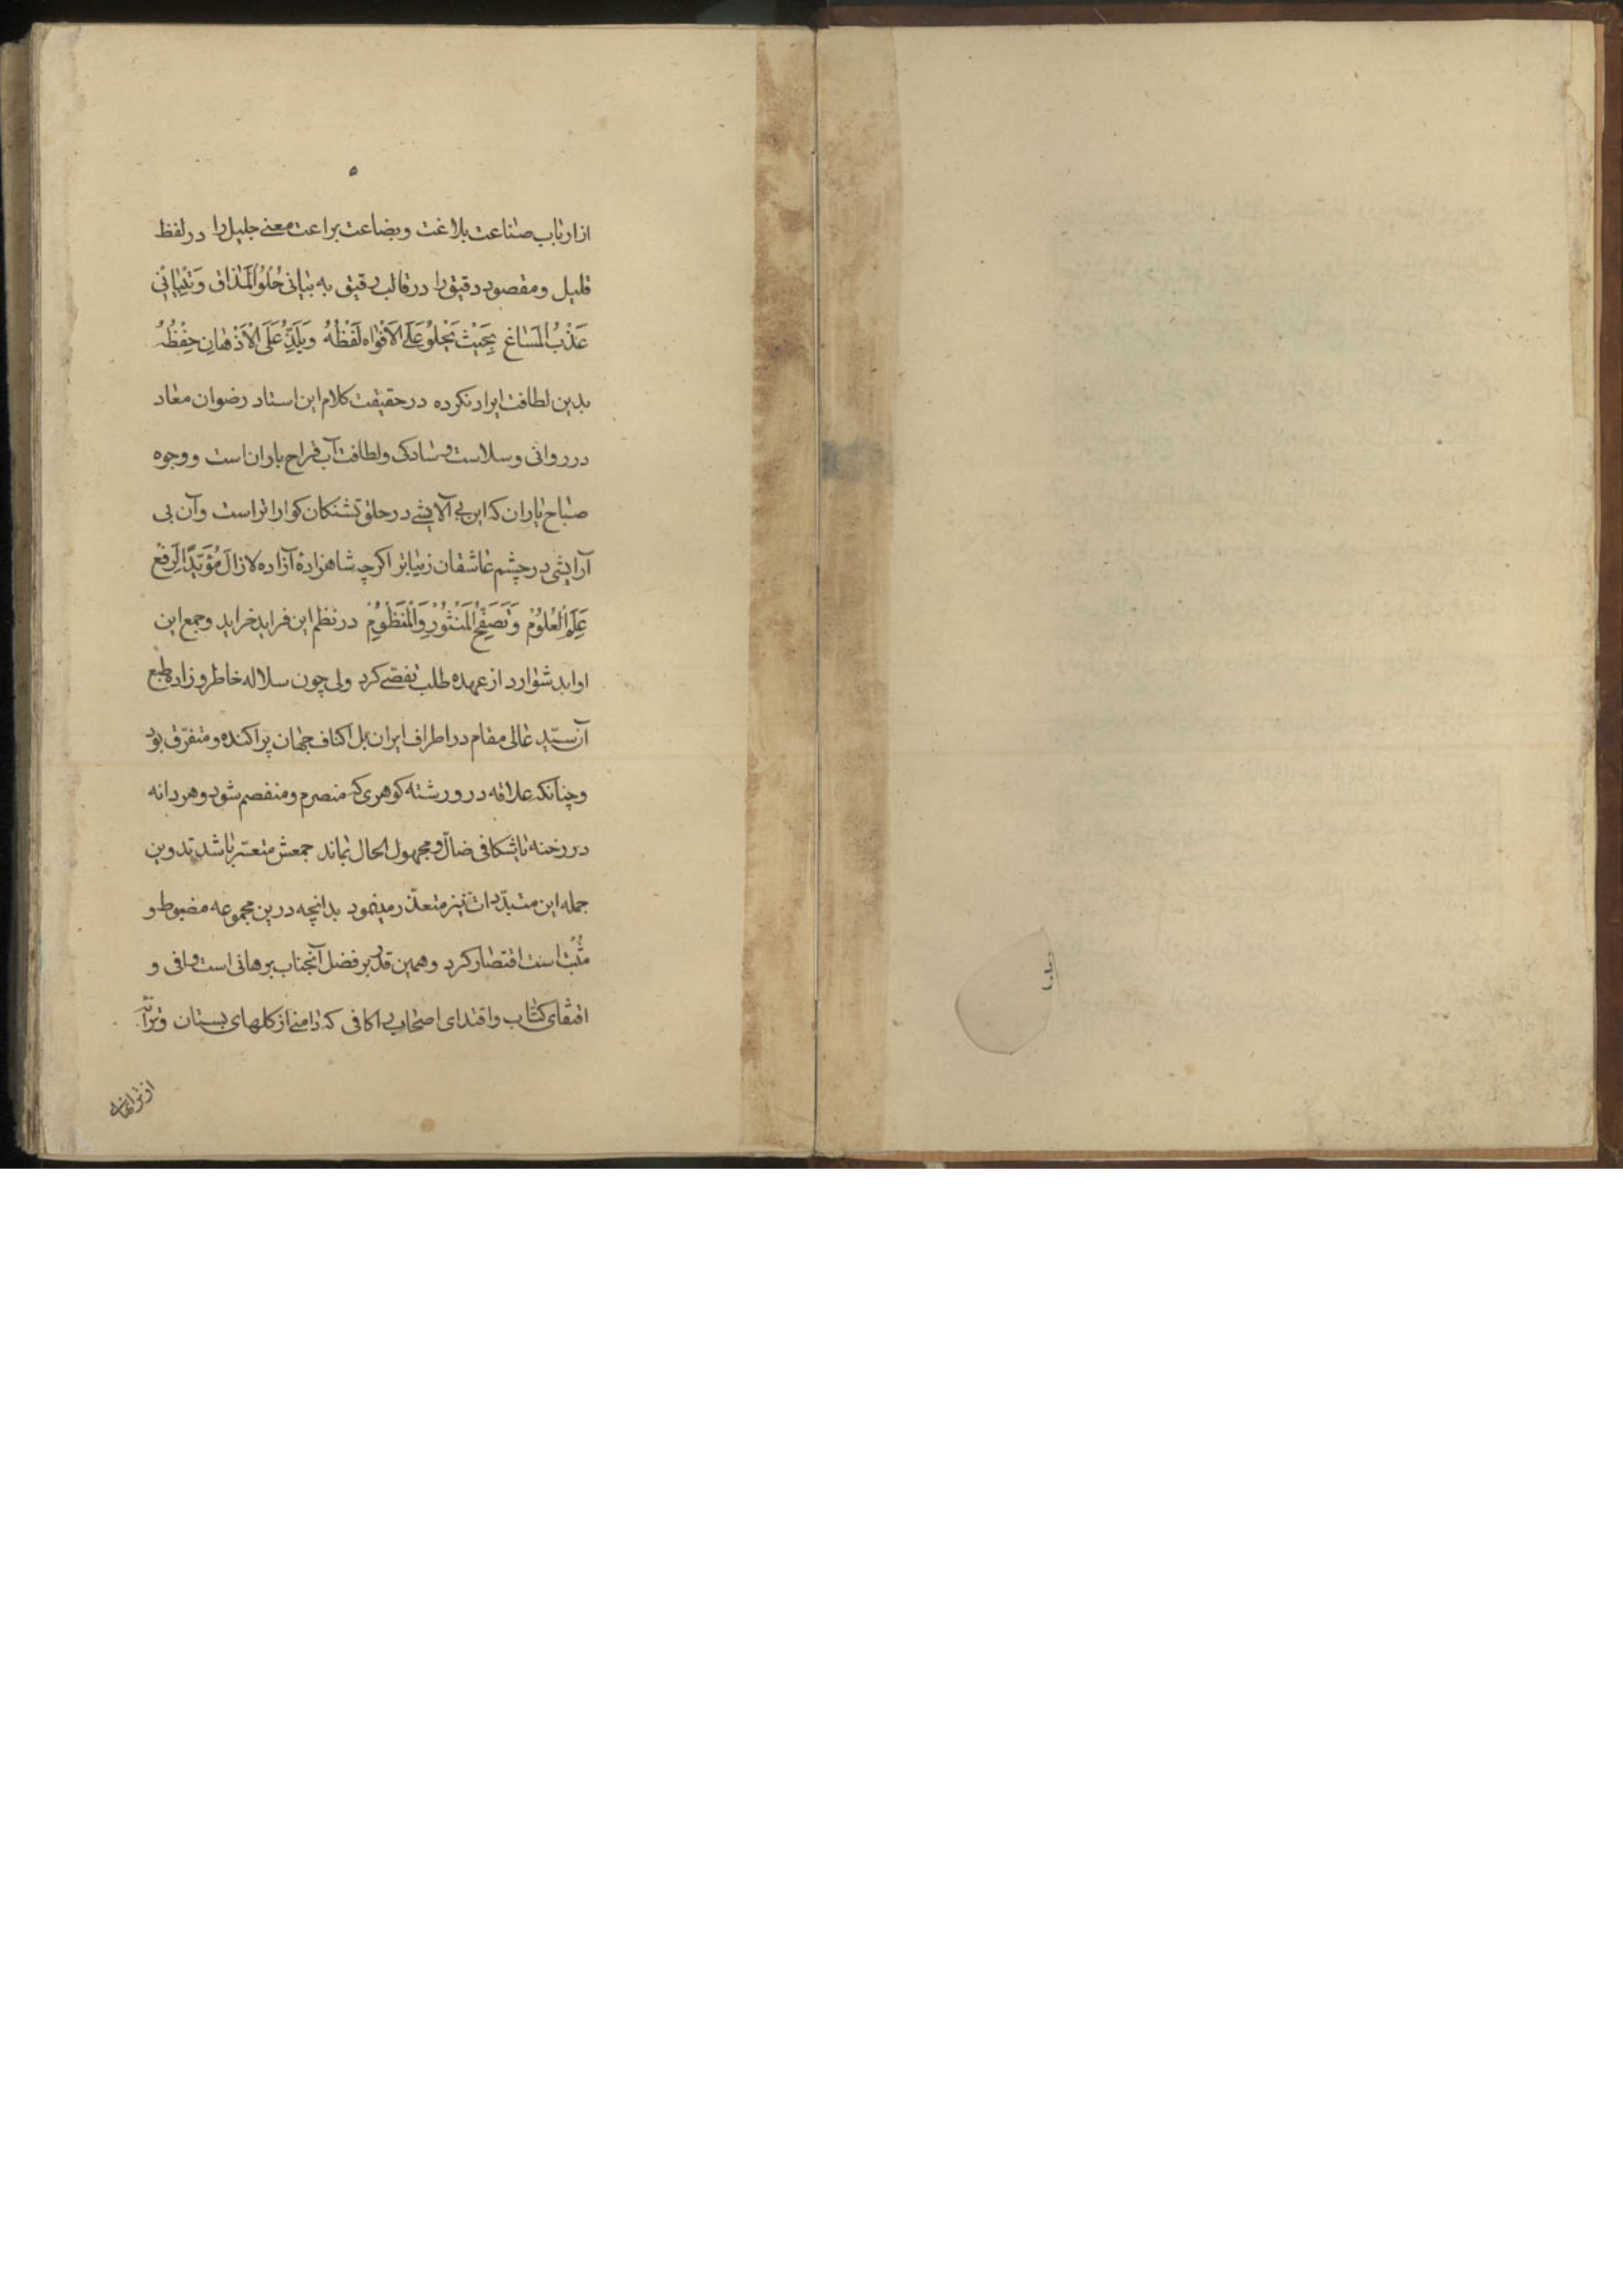 ۵
از ارباب صناعت بلاغت و بضاعت براعت معنی جلیل را در لفظ
قلیل و مقصود دقیق را در قالب رقیق به بیانی حُلْوُ الْمَذاق وَ تِبْیانی
عَذْبُ الْمَساغ بِحَیْثُ یَحْلُو عَلَی الْاَفْواهِ لَفْظُهُ وَ یَلَذُّ عَلَی الْاَذْهانِ حِفْظُهُ
بدین لطافت ایراد نکرده در حقیقت کلام این استاد رضوان معاد
در روانی و سلاست و سادکی و لطافت آب قراح باران است و وجوه
صباح یاران که این بی آلایشی در حلق تشنکان کواراتر است و آن بی
آرایشی در چشم عاشقان زیباتر اکرچه شاهزادهٔ آزاده لازالَ مُؤَیَّدًا لِرَفْعِ
عَلَمِ الْعُلُوْمِ وَ تَصَفُّحِ الْمَنْثُوْرِ وَ الْمَنْظُوْمِ در نظم این فراید خراید و جمع این
اوابد شوارد از عهده طلب تفصّی کرد ولی چون سلاله خاطر و زاده طبع
آن سیّد عالی مقام در اطراف ایران بل اکناف جهان پراکنده و متفرّق بود
و چنانکه علاقه در و رشته کوهری که منصرم و منفصم شود و هر دانه
در رخنه یا شکافی ضالّ و مجهول الحال بماند جمعش متعسّر باشد تدوین
جمله این متبدّدات نیز متعذّر مینمود بدانچه درین مجموعه مضبوط و
مثبت است اقتصار کرد و همین قدر بر فضل آنجناب برهانی است وافی و
اقتفای کتّاب و اقتدای اصحاب را کافی که دامنی از کلهای بستان و ترانه